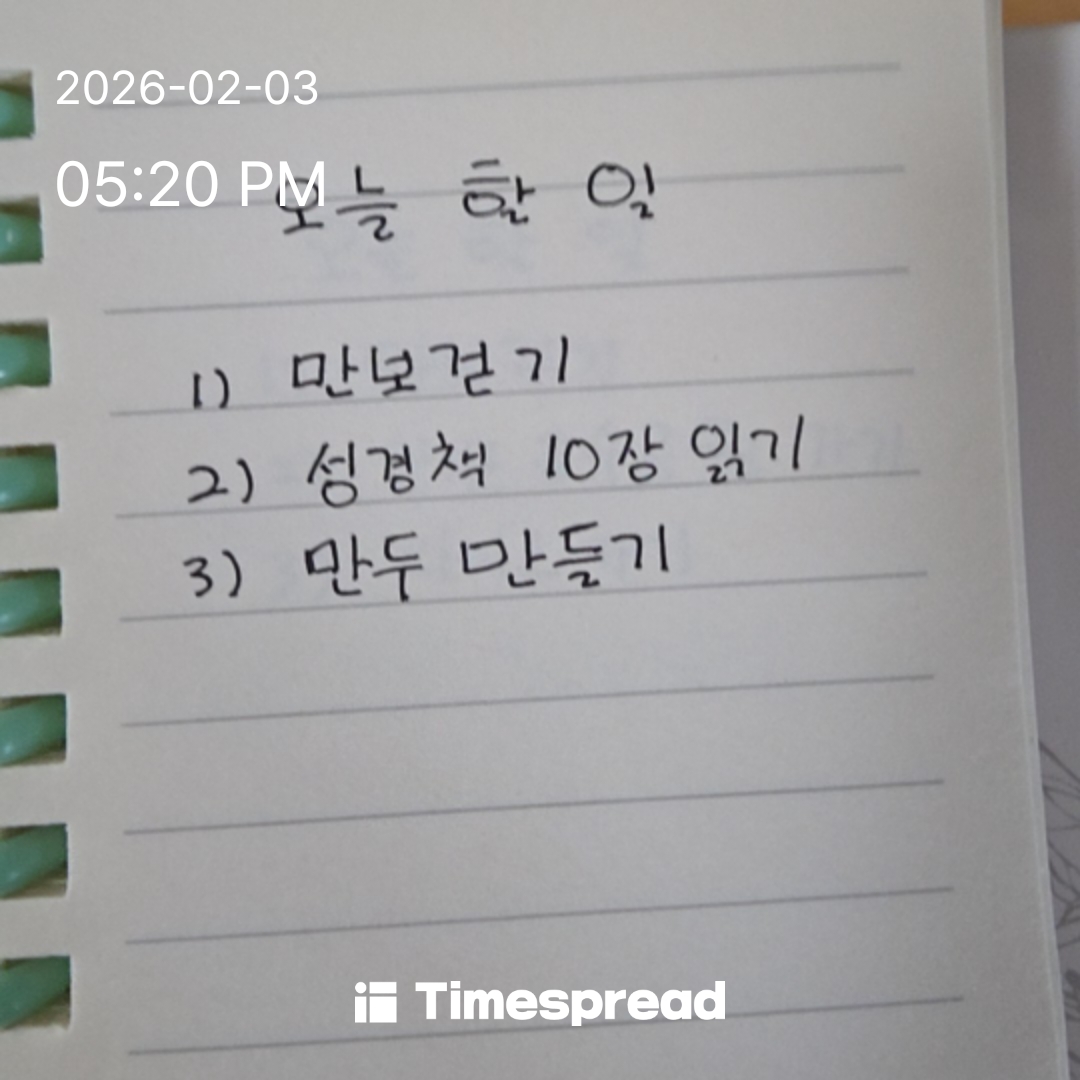 2026-02-03
05:20 PM
오늘 할 일
1) 만보걷기
2) 성경책 10장 읽기
3) 만두 만들기
Timespread